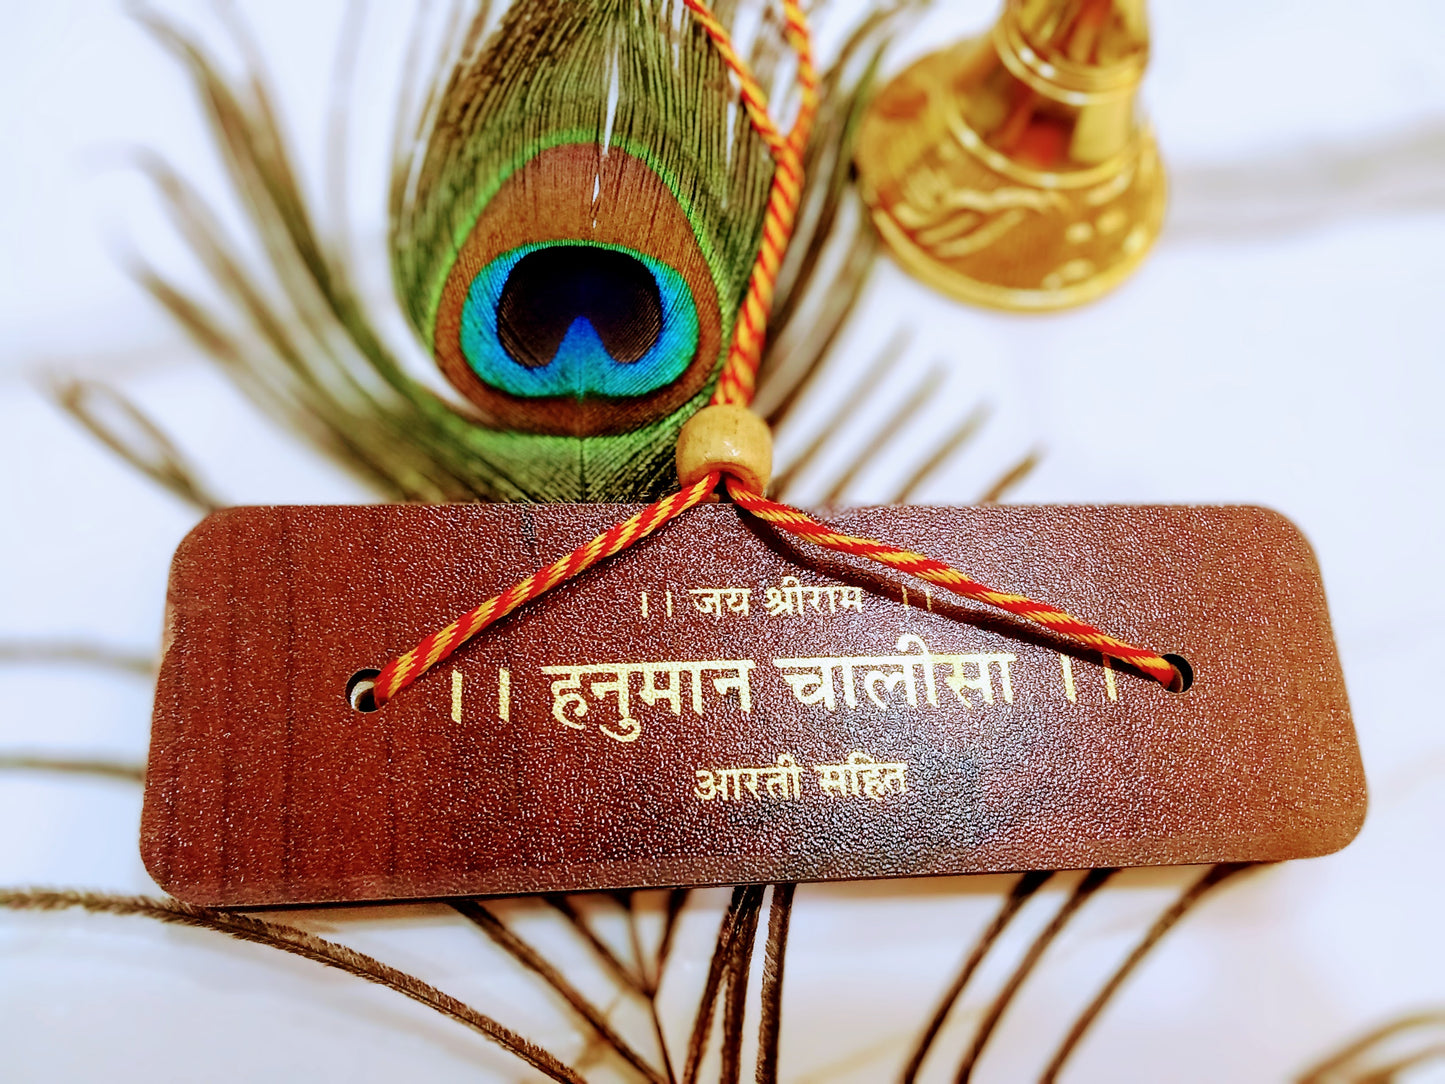 ।। जय श्रीराम ।।
।। हनुमान चालीसा ।।
आरती सहित